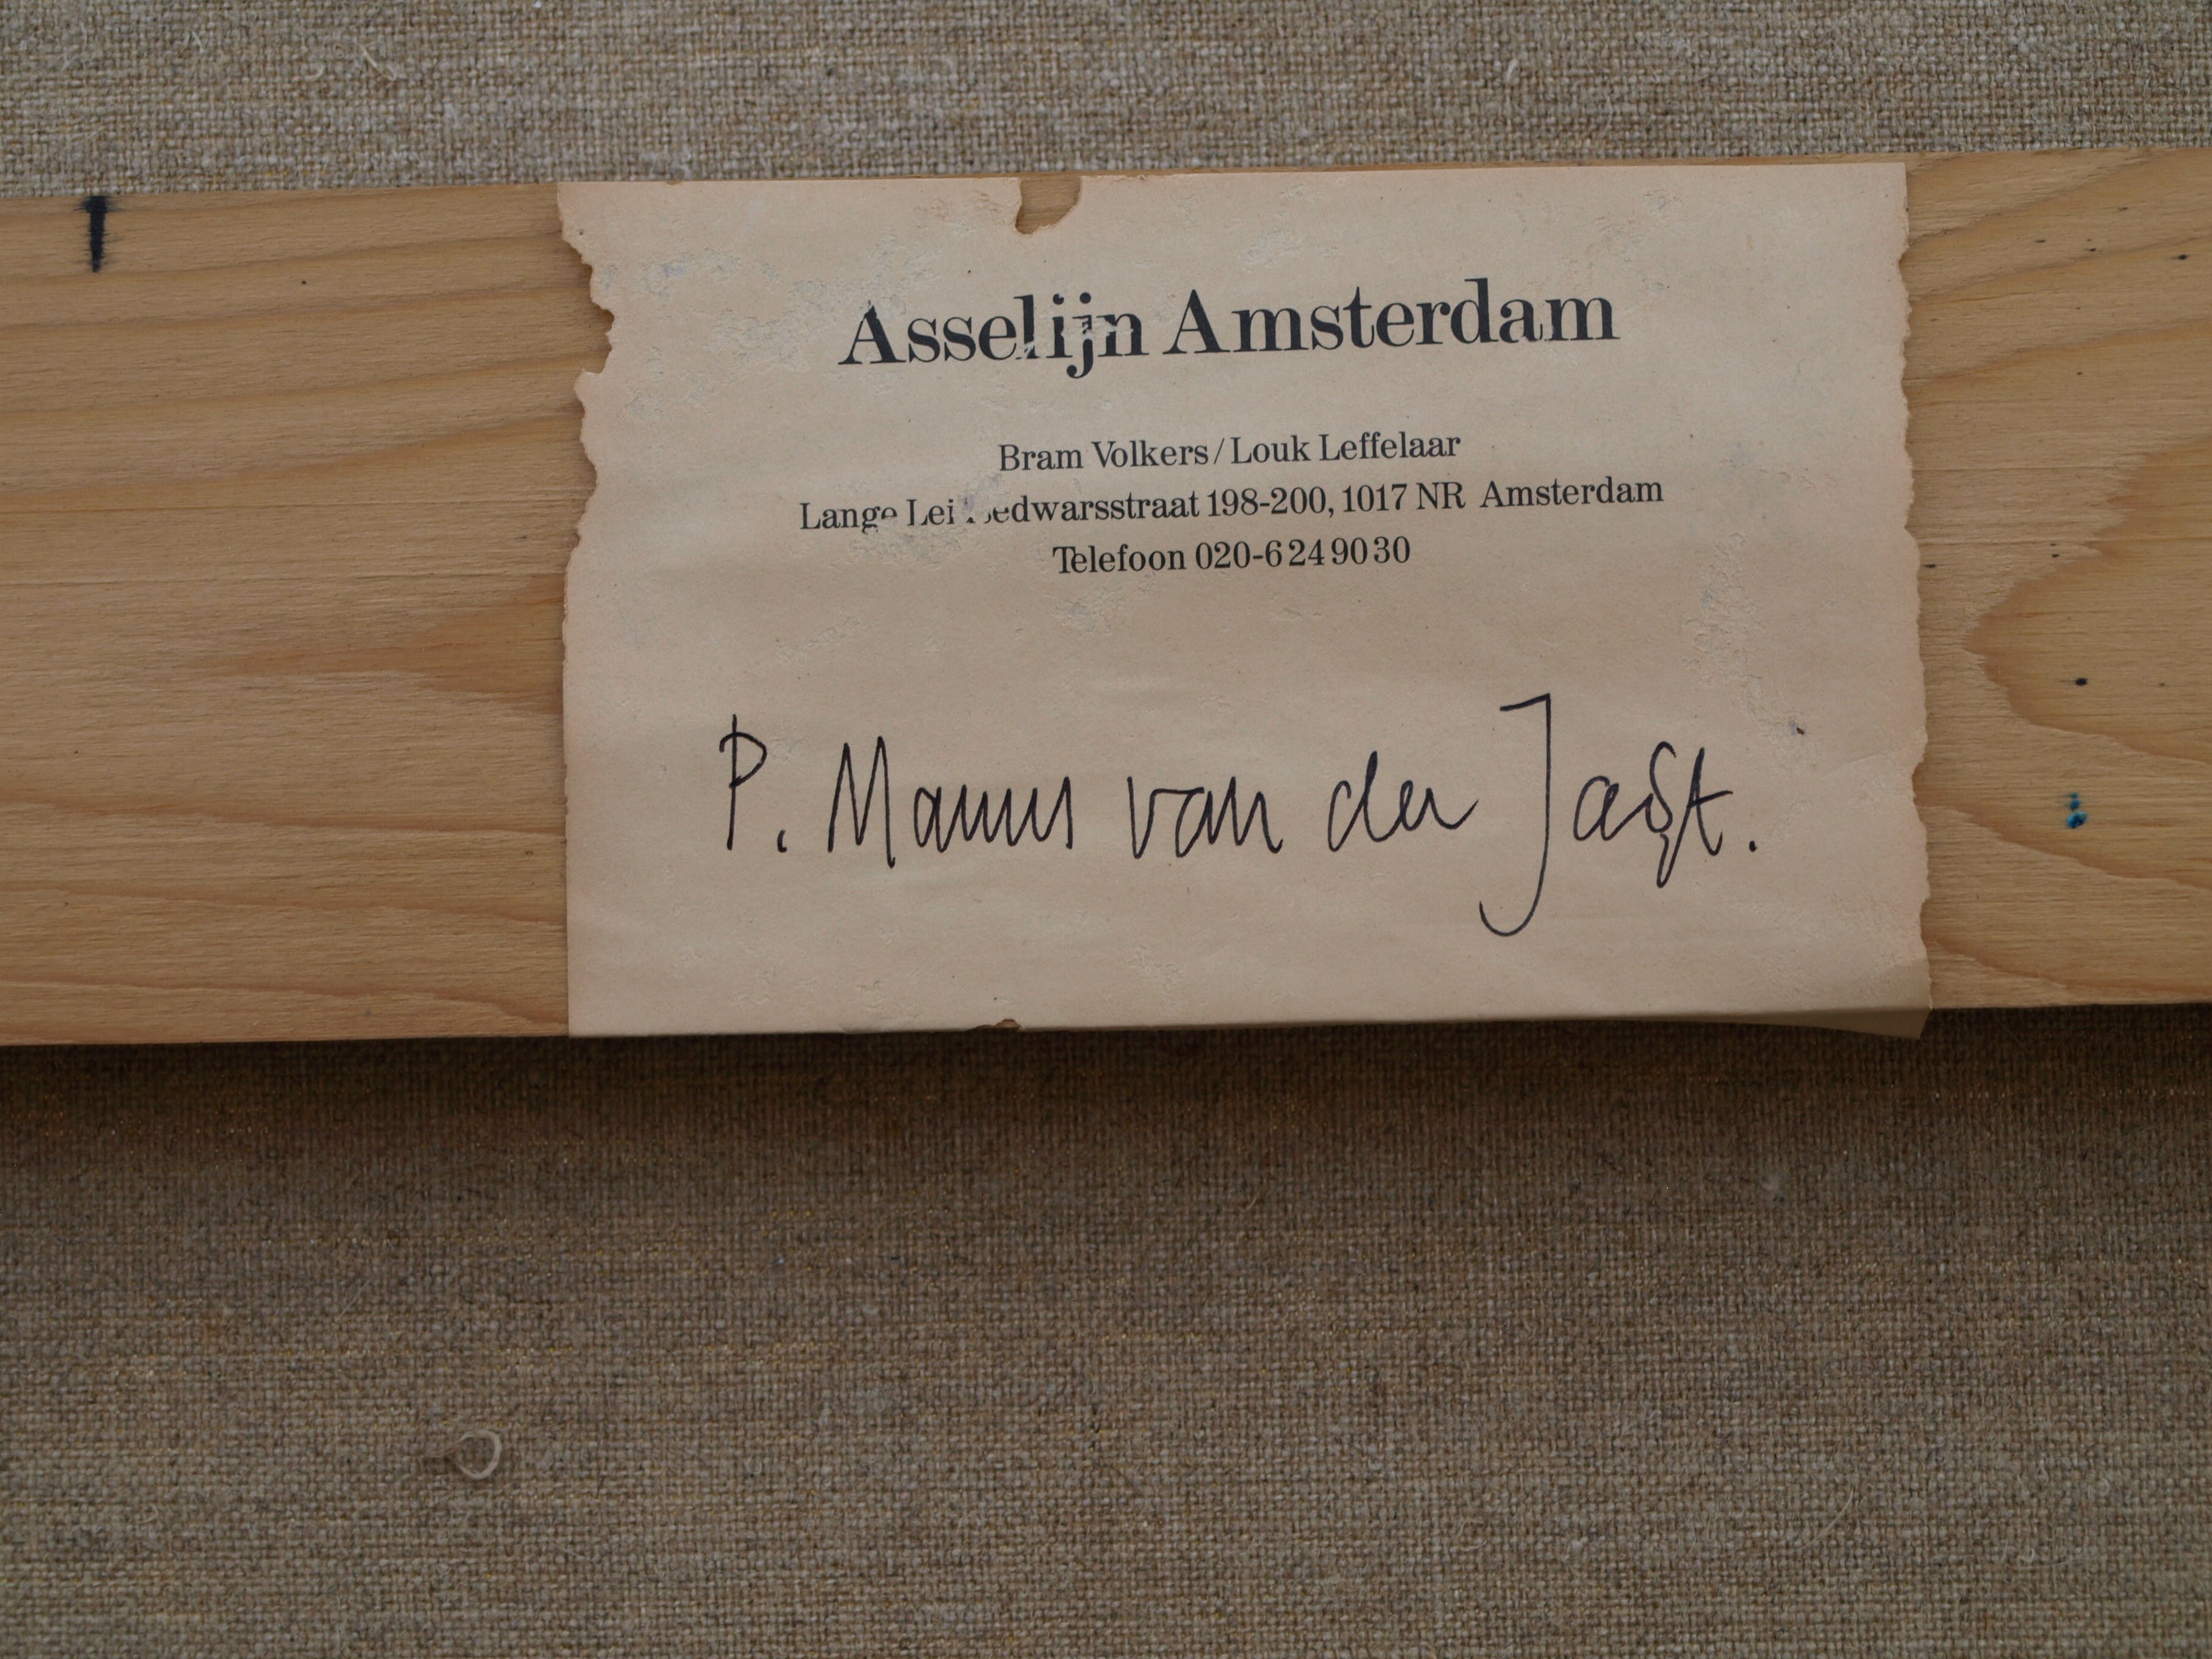 Asselijn Amsterdam
Bram Volkers / Louk Leffelaar
Lange Leidsedwarsstraat 198-200, 1017 NR Amsterdam
Telefoon 020-6249030
P. Manus van der Jagt.